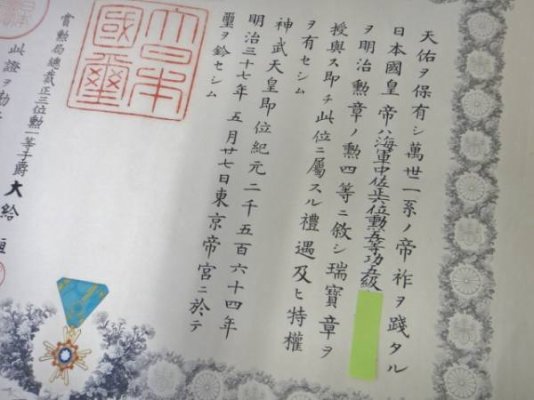 天佑ヲ保有シ萬世一系ノ帝祚ヲ踐タル
日本國皇帝ハ海軍中佐正六位勳五等功五級
ヲ明治勳章ノ勳四等ニ敍シ瑞寶章ヲ
授與ス即チ此位ニ屬スル禮遇及ヒ特權
ヲ有セシム
神武天皇即位紀元二千五百六十四年
明治三十七年五月廿七日東京帝宮ニ於テ
璽ヲ鈐セシム
大日本
國璽
賞勳局總裁正三位勳一等子爵大給恒
此證ヲ勘